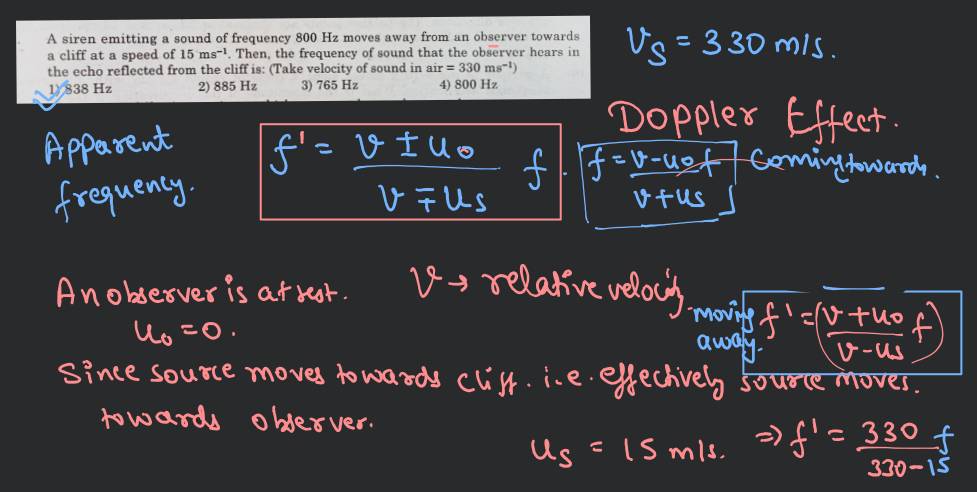 A siren emitting a sound of frequency 800 Hz moves away from an observer towards
a cliff at a speed of 15 ms⁻¹. Then, the frequency of sound that the observer hears in
the echo reflected from the cliff is: (Take velocity of sound in air = 330 ms⁻¹)
1) 838 Hz 2) 885 Hz 3) 765 Hz 4) 800 Hz
Vs = 330 m/s.
Doppler Effect.
Apparent
frequency.
f' = v ± u₀ / v ∓ us f.
f = v-u₀ / v+us f
Coming towards.
An observer is at rest.
u₀ = 0.
v → relative velocity.
moving
away.
f' = (v+u₀ / v-us f)
Since source moves towards cliff. i.e. effectively source moves.
towards observer.
us = 15 m/s. ⇒ f' = 330 / 330-15 f